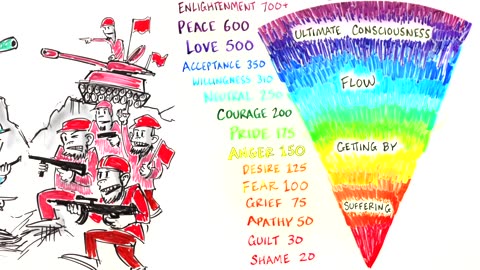 ENLIGHTENMENT 700+
PEACE 600
LOVE 500
ACCEPTANCE 350
WILLINGNESS 310
NEUTRAL 250
COURAGE 200
PRIDE 175
ANGER 150
DESIRE 125
FEAR 100
GRIEF 75
APATHY 50
GUILT 30
SHAME 20
ULTIMATE CONSCIOUSNESS
FLOW
GETTING BY
SUFFERING